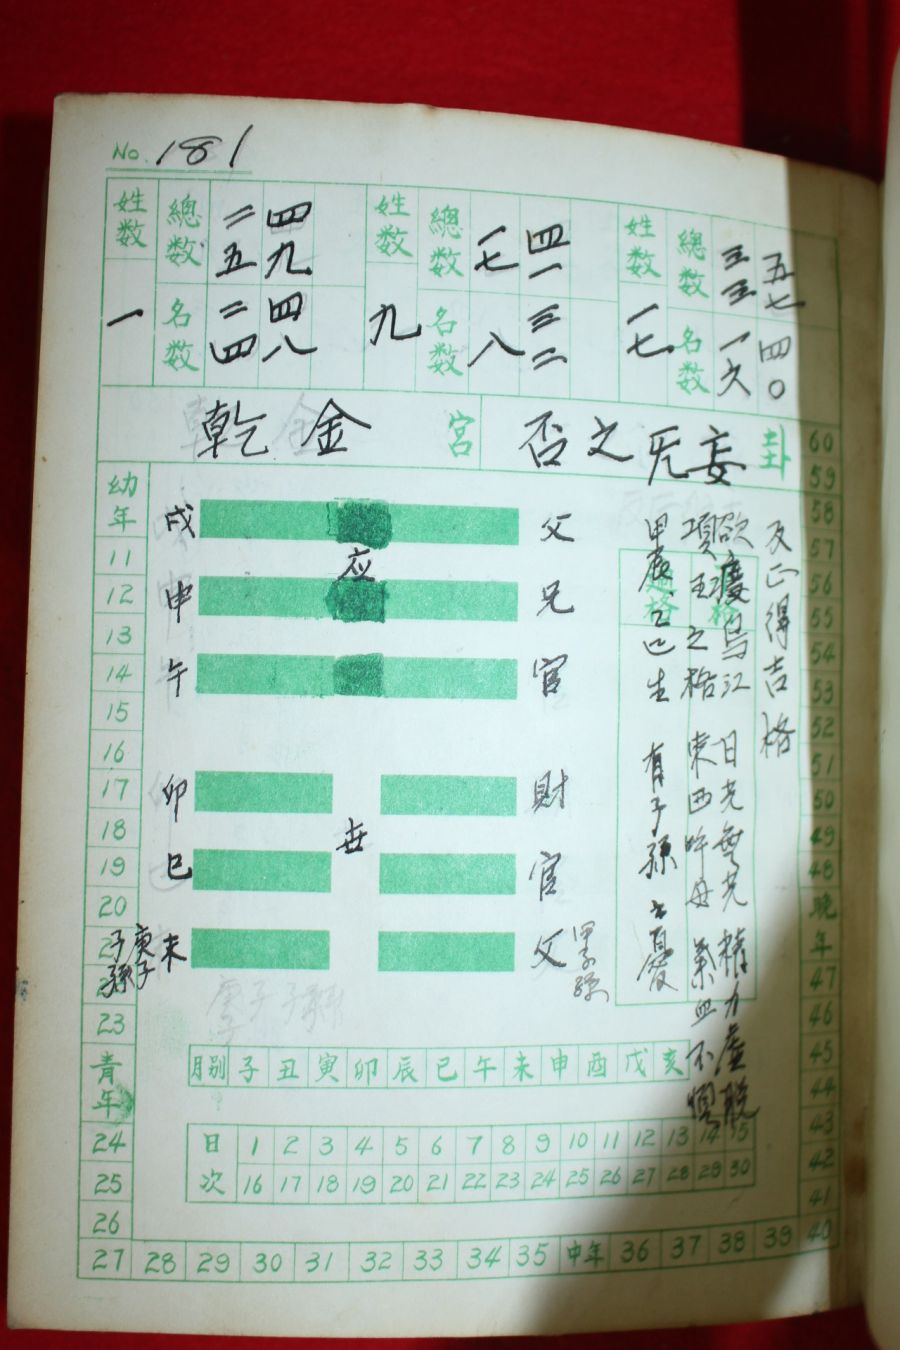 No. 181
姓数 一
總数 二五 四九
名数 二四 四八
姓数 九
總数 一七 四一
名数 八 三二
姓数 一七
總数 三三 五七
名数 一六 四〇
乾金 宮
否之旡妄 卦
戌 父
应
申 兄
午 官
卯 財
世
巳 官
未 父
甲子孫
庚子
子孫
反正得吉格
欲渡烏江 日光無光 精力虛脫
項王之格 東西
甲辰乙巳生 有子孫之憂
幼年 11 12 13 14 15 16 17 18 19 20
23 青年 24 25 26
27 28 29 30 31 32 33 34 35 中年 36 37 38 39 40
41 42 43 44 45 46 47 晩年 48 49 50 51 52 53 54 55 56 57 58 59 60
月别 子 丑 寅 卯 辰 巳 午 未 申 酉 戌 亥
日 1 2 3 4 5 6 7 8 9 10 11 12 13 14 15
次 16 17 18 19 20 21 22 23 24 25 26 27 28 29 30